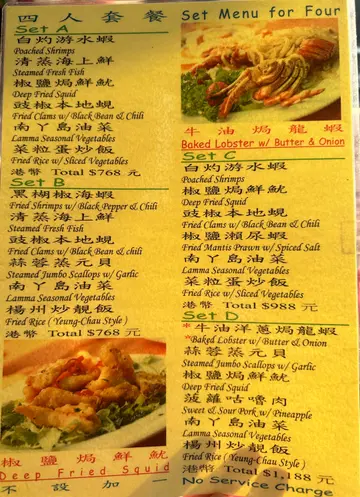 四人套餐 Set Menu for Four
Set A
白灼游水蝦
Poached Shrimps
清蒸海上鮮
Steamed Fresh Fish
椒鹽焗鮮魷
Deep Fried Squid
豉椒本地蜆
Fried Clams w/ Black Bean & Chili
南丫島油菜
Lamma Seasonal Vegetables
菜粒蛋炒飯
Fried Rice w/ Sliced Vegetables
港幣 Total $768 元
Set B
黑椒海蝦
Fried Shrimps w/ Black Pepper & Chili
清蒸海上鮮
Steamed Fresh Fish
豉椒本地蜆
Fried Clams w/ Black Bean & chili
蒜蓉蒸元貝
Steamed Jumbo Scallops w/ Garlic
南丫島油菜
Lamma Seasonal Vegetables
楊州炒飯
Fried Rice ( Yeung-Chau Style )
港幣 Total $768 元
椒鹽焗鮮魷
Deep Fried Squid
不設加一
牛油焗龍蝦
Baked Lobster w/ Butter & Onion
Set C
白灼游水蝦
Poached Shrimps
椒鹽焗鮮魷
Deep Fried Squid
豉椒本地蜆
Fried Clams w/ Black Bean & Chili
椒鹽瀨尿蝦
Fried Mantis Prawn w/ Spiced Salt
南丫島油菜
Lamma Seasonal Vegetables
菜粒蛋炒飯
Fried Rice w/ Sliced Vegetables
港幣 Total $988 元
Set D
*牛油洋蔥焗龍蝦
*Baked Lobster w/ Butter & Onion
蒜蓉蒸元貝
Steamed Jumbo Scallops w/ Garlic
椒鹽焗鮮魷
Deep Fried Squid
菠蘿咕嚕肉
Sweet & Sour Pork w/ Pineapple
南丫島油菜
Lamma Seasonal Vegetables
楊州炒飯
Fried Rice ( Yeung-Chau Style )
港幣 Total $1,188 元
No Service Charge